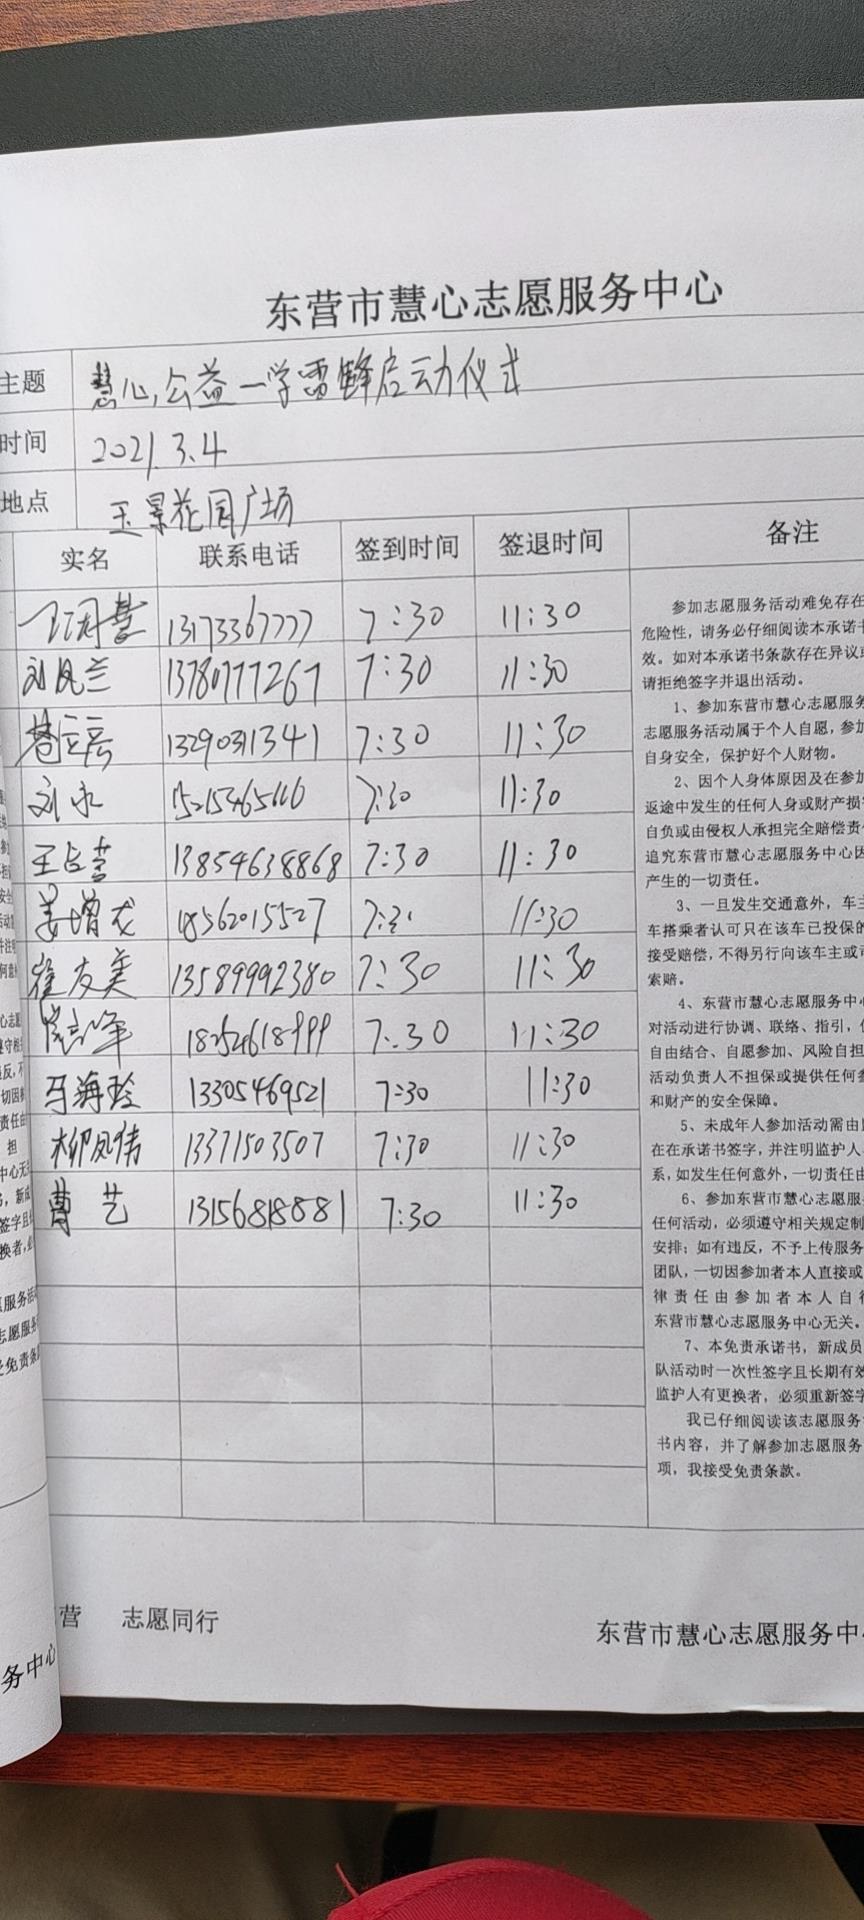 东营市慧心志愿服务中心
主题 慧心公益一学雷锋启动仪式
时间 2021.3.4
地点 玉景花园广场
实名 联系电话 签到时间 签退时间 备注
13173367777 7:30 11:30
刘凤兰 13780777267 7:30 11:30
13290311341 7:30 11:30
刘永 7:30 11:30
王占营 13854638868 7:30 11:30
姜增龙 18562015527 11:30
崔友美 13589992380 7:30 11:30
7:30 11:30
马海玲 13305469521 7:30 11:30
柳凤伟 13371503507 7:30 11:30
曹艺 13156818881 7:30 11:30
参加志愿服务活动难免存在
危险性，请务必仔细阅读本承诺书
效。如对本承诺书条款存在异议或
请拒绝签字并退出活动。
1、参加东营市慧心志愿服务
志愿服务活动属于个人自愿，参加
自身安全，保护好个人财物。
2、因个人身体原因及在参加
返途中发生的任何人身或财产损
自负或由侵权人承担完全赔偿责
追究东营市慧心志愿服务中心因
产生的一切责任。
3、一旦发生交通意外，车主
车搭乘者认可只在该车已投保的
接受赔偿，不得另行向该车主或
索赔。
4、东营市慧心志愿服务中心
对活动进行协调、联络、指引，
自由结合、自愿参加、风险自担
活动负责人不担保或提供任何
和财产的安全保障。
5、未成年人参加活动需由
在在承诺书签字，并注明监护人
系，如发生任何意外，一切责任由
6、参加东营市慧心志愿服
任何活动，必须遵守相关规定制
安排；如有违反，不予上传服务
团队，一切因参加者本人直接或
律责任由参加者本人自
东营市慧心志愿服务中心无关。
7、本免责承诺书，新成员
队活动时一次性签字且长期有效
监护人有更换者，必须重新签字
我已仔细阅读该志愿服务
书内容，并了解参加志愿服务
项，我接受免责条款。
营 志愿同行
东营市慧心志愿服务中
务中心